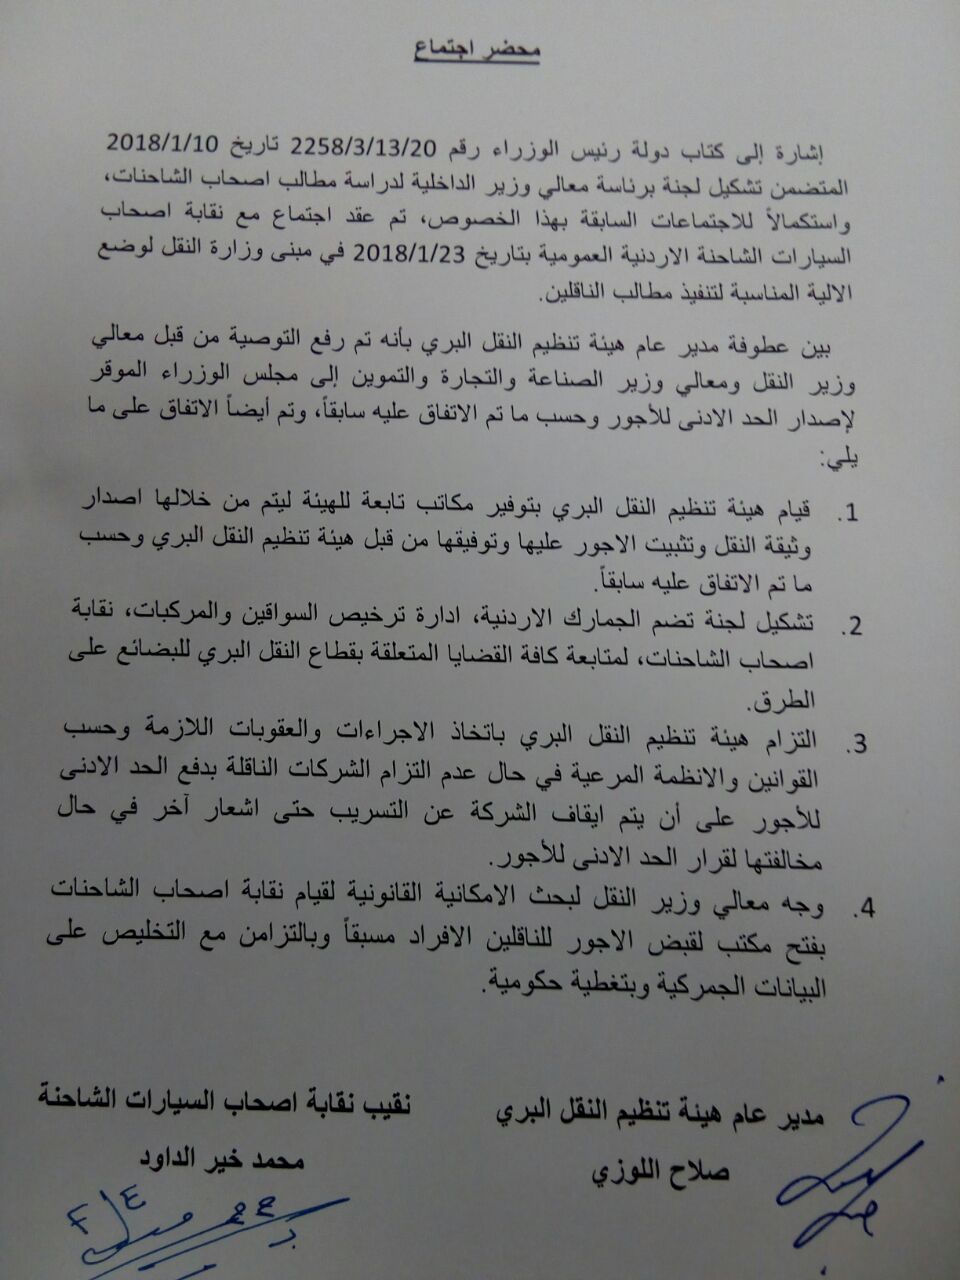 محضر اجتماع
إشارة إلى كتاب دولة رئيس الوزراء رقم 2258/3/13/20 تاريخ 2018/1/10
المتضمن تشكيل لجنة برئاسة معالي وزير الداخلية لدراسة مطالب اصحاب الشاحنات،
واستكمالاً للاجتماعات السابقة بهذا الخصوص، تم عقد اجتماع مع نقابة اصحاب
السيارات الشاحنة الاردنية العمومية بتاريخ 2018/1/23 في مبنى وزارة النقل لوضع
الالية المناسبة لتنفيذ مطالب الناقلين.
بين عطوفة مدير عام هيئة تنظيم النقل البري بأنه تم رفع التوصية من قبل معالي
وزير النقل ومعالي وزير الصناعة والتجارة والتموين إلى مجلس الوزراء الموقر
لإصدار الحد الادنى للأجور وحسب ما تم الاتفاق عليه سابقاً، وتم أيضاً الاتفاق على ما
يلي:
1. قيام هيئة تنظيم النقل البري بتوفير مكاتب تابعة للهيئة ليتم من خلالها اصدار
وثيقة النقل وتثبيت الاجور عليها وتوفيقها من قبل هيئة تنظيم النقل البري وحسب
ما تم الاتفاق عليه سابقاً.
2. تشكيل لجنة تضم الجمارك الاردنية، ادارة ترخيص السواقين والمركبات، نقابة
اصحاب الشاحنات، لمتابعة كافة القضايا المتعلقة بقطاع النقل البري للبضائع على
الطرق.
3. التزام هيئة تنظيم النقل البري باتخاذ الاجراءات والعقوبات اللازمة وحسب
القوانين والانظمة المرعية في حال عدم التزام الشركات الناقلة بدفع الحد الادنى
للأجور على أن يتم ايقاف الشركة عن التسريب حتى اشعار آخر في حال
مخالفتها لقرار الحد الادنى للأجور.
4. وجه معالي وزير النقل لبحث الامكانية القانونية لقيام نقابة اصحاب الشاحنات
بفتح مكتب لقبض الاجور للناقلين الافراد مسبقاً وبالتزامن مع التخليص على
البيانات الجمركية وبتغطية حكومية.
مدير عام هيئة تنظيم النقل البري
صلاح اللوزي
نقيب نقابة اصحاب السيارات الشاحنة
محمد خير الداود